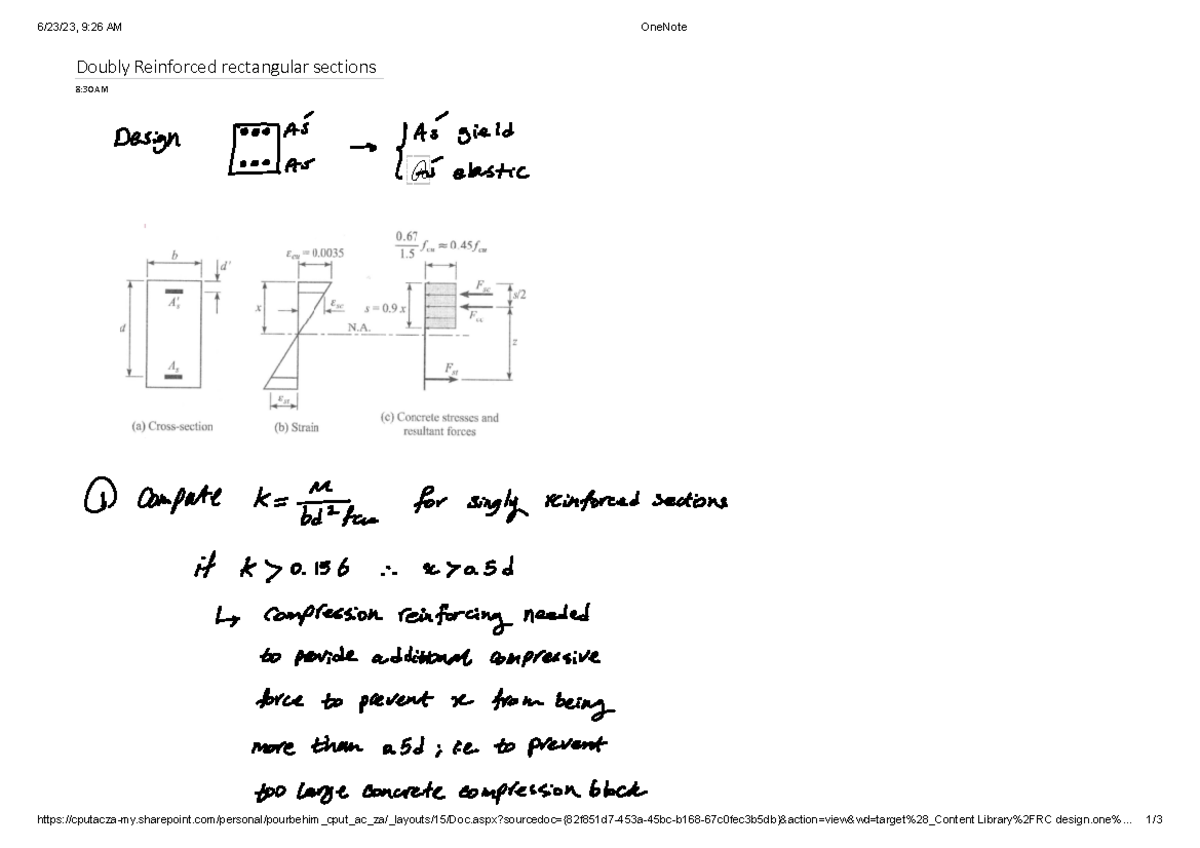 6/23/23, 9:26 AM
OneNote
Doubly Reinforced rectangular sections
8:30 AM
Design
As'
As
→
As' yield
As' elastic
b
d'
As'
d
As
(a) Cross-section
εcu = 0.0035
x
εsc
N.A.
εst
(b) Strain
0.67/1.5 fcu ≈ 0.45fcu
s = 0.9 x
Fsc
s/2
Fcc
z
Fst
(c) Concrete stresses and
resultant forces
① Compute k = M/bd²fcu for singly reinforced sections
if k > 0.156 ∴ x > 0.5d
↳ compression reinforcing needed
to provide additional compressive
force to prevent x from being
more than 0.5d ; i.e. to prevent
too large concrete compression block
https://cputacza-my.sharepoint.com/personal/pourbehim_cput_ac_za/_layouts/15/Doc.aspx?sourcedoc={82f851d7-453a-45bc-b168-67c0fec3b5db}&action=view&wd=target%28_Content Library%2FRC design.one%...
1/3